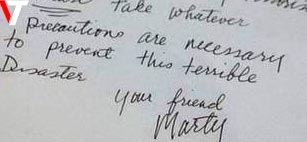 VT
take whatever
precautions are necessary
to prevent this terrible
Disaster
your friend
Marty